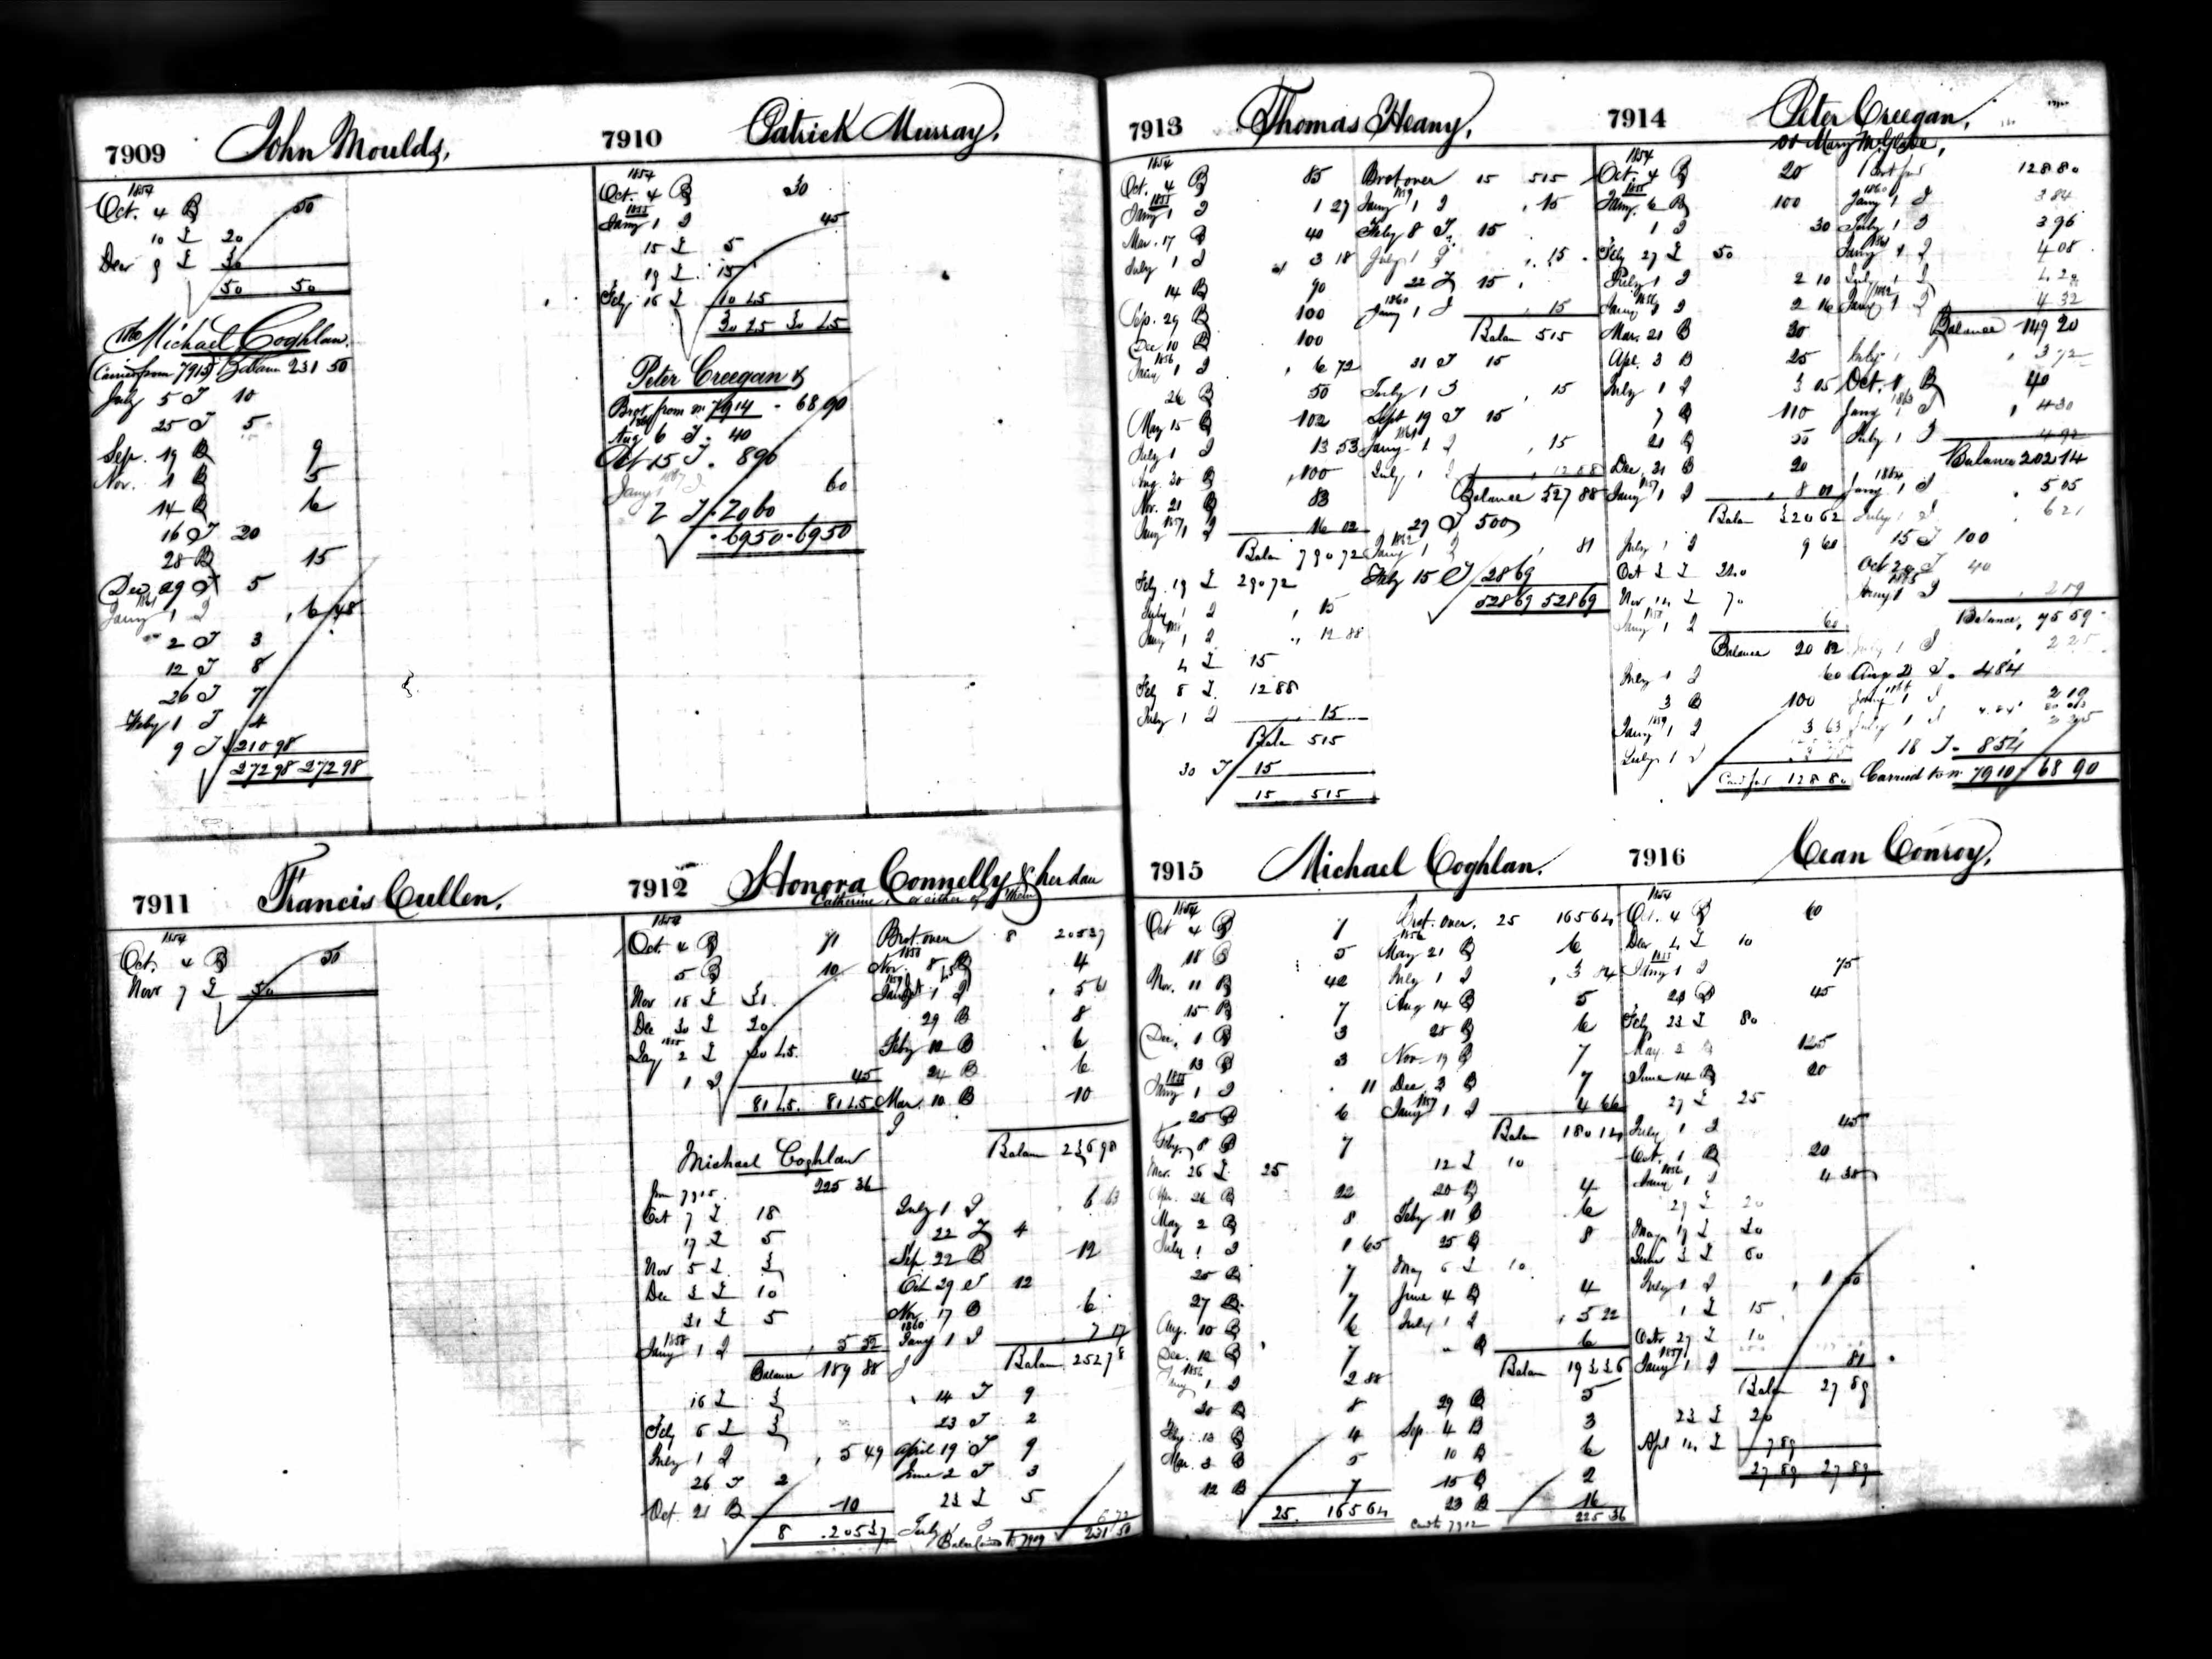 7909 John Moulds,
1854
Oct. 4 B 50
10 L 20
Decr 9 L 30
50 50
Michael Coghlan.
(Carried from 7915) Balann 231 50
July 5 J 10
25 J 5
Sep. 19 B 9
Nov. 1 B 5
14 B 6
16 J 20
28 B 15
Dec. 29 J 5
Jany 1 I 6 48
2 J 3
12 J 8
26 J 7
Feby 1 J 4
9 J 210 98
272 98 272 98
7910 Patrick Murray,
1854
Oct. 4 B 30
1855
Jany 1 I 45
15 L 5
19 L 15
Feby 16 L 10 45
30 45 30 45
Peter Creegan &
Brot from no 7914 - 68 90
Aug 6 J. 40
Oct 15 J. 8 90
Jany 1 60
2 J. 20 60
69 50 69 50
7911 Francis Cullen,
1854
Oct. 4 B 50
Novr 7 L 50
7912 Honora Connelly & her dau
Catherine, or either of them
1854
Oct. 4 B 71
5 B 10
Nov 18 L 31
Dec 30 L 20
1855
Jany 2 L 30 45
1 I 45
81 45 81 45
Michael Coghlan
fm 7915. 225 36
Oct 7 L 18
17 L 5
Nov 5 L 3
Dec 3 L 10
31 L 5
1858
Jany 1 I 5 52
Balance 189 88
16 L 3
Feby 6 L 3
July 1 I 5 49
26 J 2
Oct. 21 B 10
8 205 37
Brot over 8 205 37
1858
Nov. 8 B 4
1859
Jany 1 I 5 61
29 B 8
Feby 12 B 6
24 B 6
Mar. 10 B 10
Balann 236 98
July 1 I 6 63
22 J 4
Sep 22 B 12
Oct 29 J 12
Nov. 17 B 6
1860
Jany 1 I 7 17
Balann 252 78
14 J 9
23 J 2
April 19 J 9
June 2 J 3
23 L 5
July 1 I 6 72
Balan Carried to 7909 231 50
7913 Thomas Heany,
1854
Oct. 4 B 85
1855
Jany 1 I 1 27
Mar. 17 B 40
July 1 I 3 18
14 B 90
Sep. 29 B 100
Dec 10 B 100
1856
Jany 1 I 6 72
26 B 50
May 15 B 102
July 1 I 13 53
Aug. 30 B 100
Nov. 21 B 83
1857
Jany 1 I 16 02
Balan 790 72
Feby. 19 L 290 72
July 1 I 15
1858
Jany 1 I 12 88
4 L 15
Feby 8 L 12 88
July 1 I 15
Balan 515
30 J 15
15 515
Brot over 15 515
1859
Jany 1 I 15
Feby 8 J. 15
July 1 I 15
22 J 15
1860
Jany 1 I 15
Balan 515
31 J 15
July 1 I 15
Sept 19 J 15
1861
Jany 1 I 15
July 1 I 12 88
Balance 527 88
29 J 500
1862
Jany 1 I 81
Feby 15 J 28 69
528 69 528 69
7914 Peter Creegan,
or Mary McGlade,
1854
Oct. 4 B 20
1855
Jany. 6 B 100
1 I 30
Feby 27 L 50
July 1 I 2 10
1856
Jany 1 I 2 16
Mar. 21 B 30
Apl. 3 B 25
July 1 I 3 05
7 B 110
21 B 50
Dec. 31 B 20
1857
Jany 1 I 8 01
Balan 320 62
July 1 I 9 60
Oct 3 L 240
Nov 14 L 70
1858
Jany 1 I 60
Balance 20 82
July 1 I 60
3 B 100
1859
Jany 1 I 3 63
July 1 I
Card for 128 80
Brot for 128 80
1860
Jany 1 I 3 84
July 1 I 3 96
1861
Jany 1 I 4 08
July 1 I 4 20
1862
Jany 1 I 4 32
Balance 149 20
July 1 I 3 72
Oct. 8 B 40
1863
Jany 1 I 4 30
July 1 I 4 92
Balance 202 14
1864
Jany 1 I 5 05
July 1 I 6 21
15 J 100
Oct 20 J 40
1865
Jany 1 I 2 19
Balance, 75 59
July 1 I 2 25
Aug 21 J. 4 84
1866
Jany 1 I 2 19
July 1 I
18 J. 8 54
Carried to no 7910 68 90
7915 Michael Coghlan.
1854
Oct 4 B 7
18 B 5
Nov. 11 B 42
15 B 7
Dec. 1 B 3
13 B 3
1855
Jany 1 I 11
20 B 6
Feby. 8 B 7
Mar. 26 L 25
Apr. 26 B 22
May 2 B 8
July 1 I 1 65
20 B 7
27 B 7
Aug. 10 B 6
Dec. 12 B 7
1856
Jany 1 I 2 88
20 B 8
Feby. 13 B 4
Mar. 3 B 5
12 B 7
25. 165 64
Brot. over. 25 165 64
1856
May 21 B 6
July 1 I 3 84
Aug 14 B 5
25 B 6
Nov 19 B 7
Dec. 3 B 7
1857
Jany 1 I 4 66
Balan 180 14
12 L 10
20 B 4
Feby 11 B 6
25 B 8
May 6 L 10
June 4 B 4
July 1 I 5 22
" B 6
Balan 193 36
29 B 5
Sep. 4 B 3
10 B 6
15 B 2
23 B 16
Card to 7912 225 36
7916 Cean Conroy,
1854
Oct. 4 B 60
Decr 4 L 10
1855
Jany 1 I 75
20 B 45
Feby 23 L 80
May. 2 B 125
June 14 B 20
27 L 25
July 1 I 45
Oct. 1 B 20
1856
Jany 1 I 4 38
29 L 20
May 19 L 30
June 3 L 60
July 1 I 1 50
1 L 15
Octr 27 L 10
1857
Jany 1 I 81
Balan 27 89
23 L 20
Apl 14 L 7 89
27 89 27 89